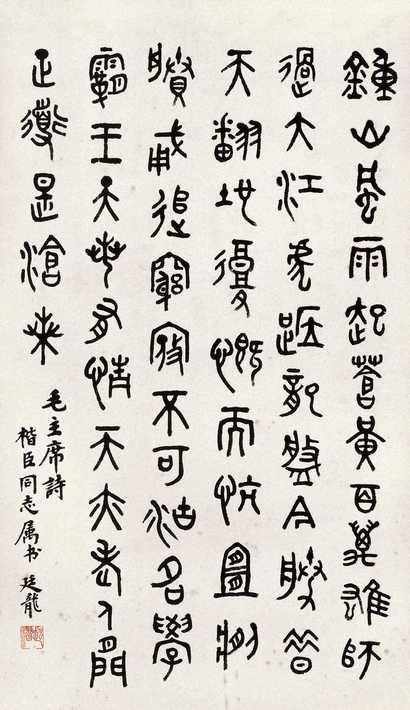 鍾山風雨起蒼黃百萬雄師
過大江虎踞龍盤今勝昔
天翻地覆慨而慷宜將
賸勇追窮寇不可沽名學
霸王天若有情天亦老人間
正道是滄桑
毛主席詩
楷臣同志属书 廷龍